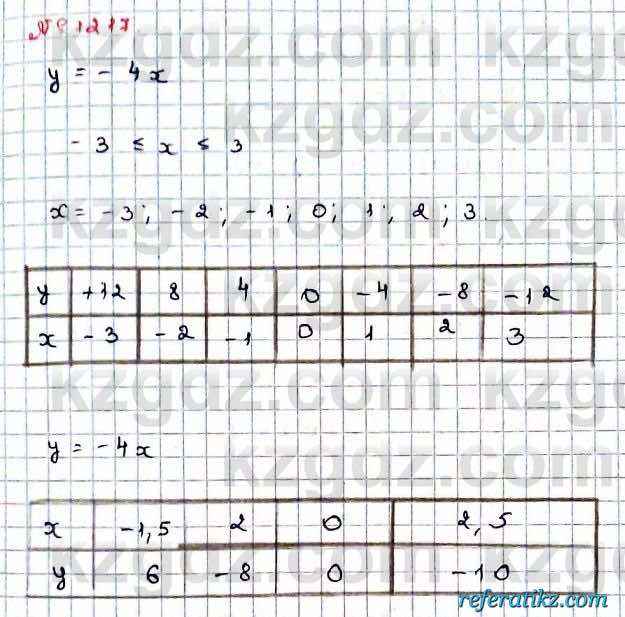 № 1217
y = - 4x
- 3 ≤ x ≤ 3
x = - 3; - 2; - 1; 0; 1; 2; 3.
y +12 8 4 0 -4 -8 -12
x -3 -2 -1 0 1 2 3
y = - 4x
x -1,5 2 0 2,5
y 6 -8 0 -10
referatikz.com
kzgdz.com